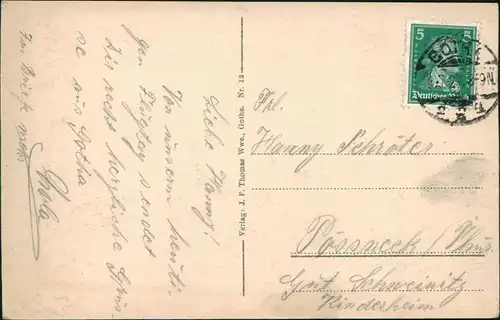 Liebe Hanny!
Von unserem heuti-
gen Ausflug sendet
Dir recht herzliche Grüs-
se aus Gotha
Lola
Im Brief mehr
Verlag: J. F. Thomas Wwe., Gotha. Nr. 12
5 5
Deutsches Reich
GOTHA
Frl.
Hanny Schröter
Pössneck /
Gut Schweinitz
Kinderheim